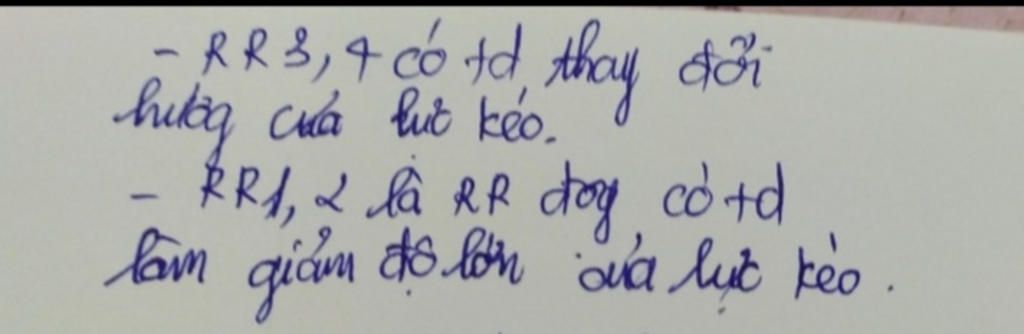 - RR3, 4 có td thay đổi
hướng của lực kéo.
- RR1, 2 là RR động có td
làm giảm độ lớn của lực kéo.